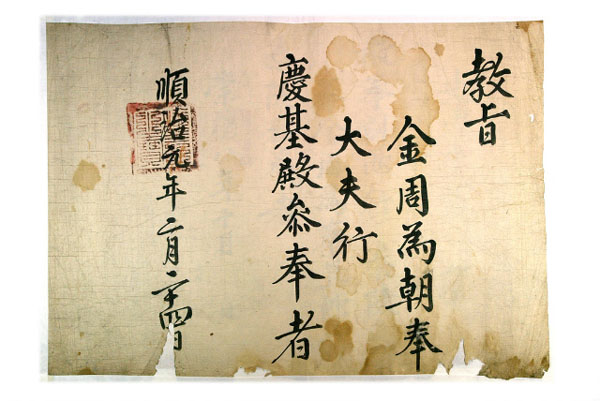 教旨
金周為朝奉
大夫行
慶基殿叅奉者
順治元年二月二十四日